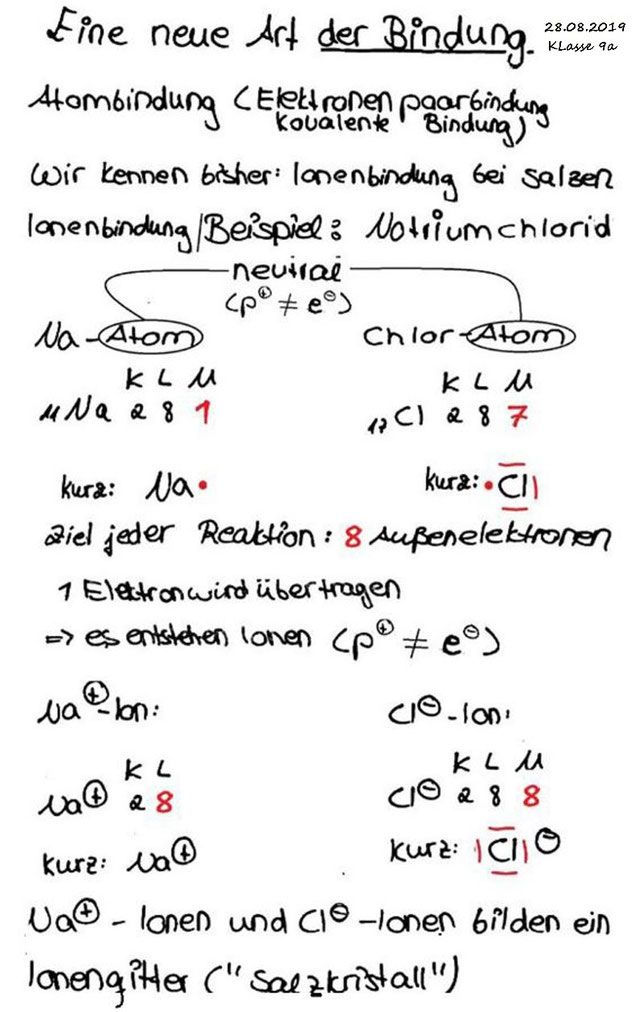 Eine neue Art der Bindung.
28.08.2019
Klasse 9a
Atombindung (Elektronenpaarbindung
Kovalente Bindung)
Wir kennen bisher: Ionenbindung bei Salzen
Ionenbindung/Beispiel: Natriumchlorid
neutral
(p⊕ ≠ e⊖)
Na-Atom Chlor-Atom
K L M K L M
₁₁Na 2 8 1 ₁₇Cl 2 8 7
kurz: Na• kurz: •C̅l̲|
Ziel jeder Reaktion: 8 Außenelektronen
1 Elektron wird übertragen
=> es entstehen Ionen (p⊕ ≠ e⊖)
Na⊕-Ion: Cl⊖-Ion:
K L K L M
Na⊕ 2 8 Cl⊖ 2 8 8
kurz: Na⊕ kurz: |C̅l̲|⊖
Na⊕-Ionen und Cl⊖-Ionen bilden ein
Ionengitter ("Salzkristall")